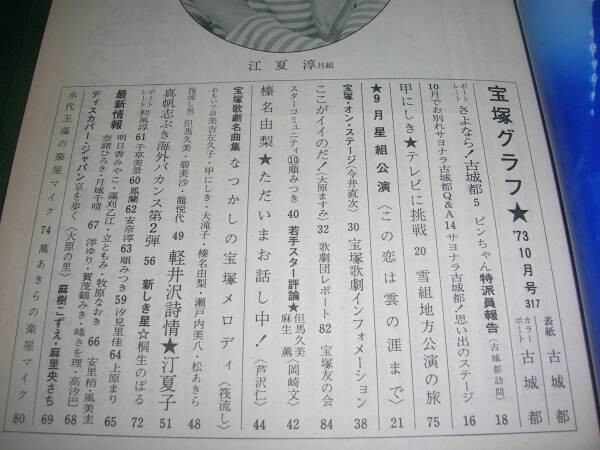 江夏淳 月組
宝塚グラフ★'73 10月号 317
表紙 古城都
カラーポート 古城都
ポートレート さよなら!古城都 5 ピンちゃん特派員報告〈古城都訪問〉 18
10月でお別れサヨナラ古城都Q&A 14 サヨナラ古城都!思い出のステージ 16
甲にしき★テレビに挑戦 20 雪組地方公演の旅 75
★9月星組公演〈この恋は雲の涯まで〉 21
宝塚・オン・ステージ〈今井直次〉 30 宝塚歌劇インフォメーション 38
ここがイイのだ!〈大原ますみ〉 32 歌劇団レポート 82 宝塚友の会 84
スターコミュニティ⑩順みつき 40 若手スター評論★但馬久美〈岡崎文〉 麻生薫 42
榛名由梨★ただいまお話し中!〈芦沢仁〉 44
宝塚歌劇名曲集 なつかしの宝塚メロディ〈筏流し〉
おもいで話 美吉左久子・甲にしき・大滝子・榛名由梨・瀬戸内美八・松あきら
筏流し男 但馬久美・碧美沙・龍悦代 49 軽井沢詩情★汀夏子 51
真帆志ぶき海外バカンス第2弾 56 新しき星☆桐生のぼる 72
ポートレート 初風諄 61 千草美景 60 鳳蘭 62 安奈淳 63 順みつき 59 汐見里佳 64 上原まり 65
最新情報 明日香みやこ・藻刈乙江・立ともみ・牧原なおき 66 安里梢・風美圭
奈緒ひろき・月城千晴 67 洋ゆり・賀茂鶴みき・峰さを理・高汐巴 68
ディスカバー・ジャパン 京を歩く〈大原の里〉 麻樹こずえ・麻里央さち 69
水代玉藻の楽屋マイク 74 萬あきらの楽屋マイク 80
48